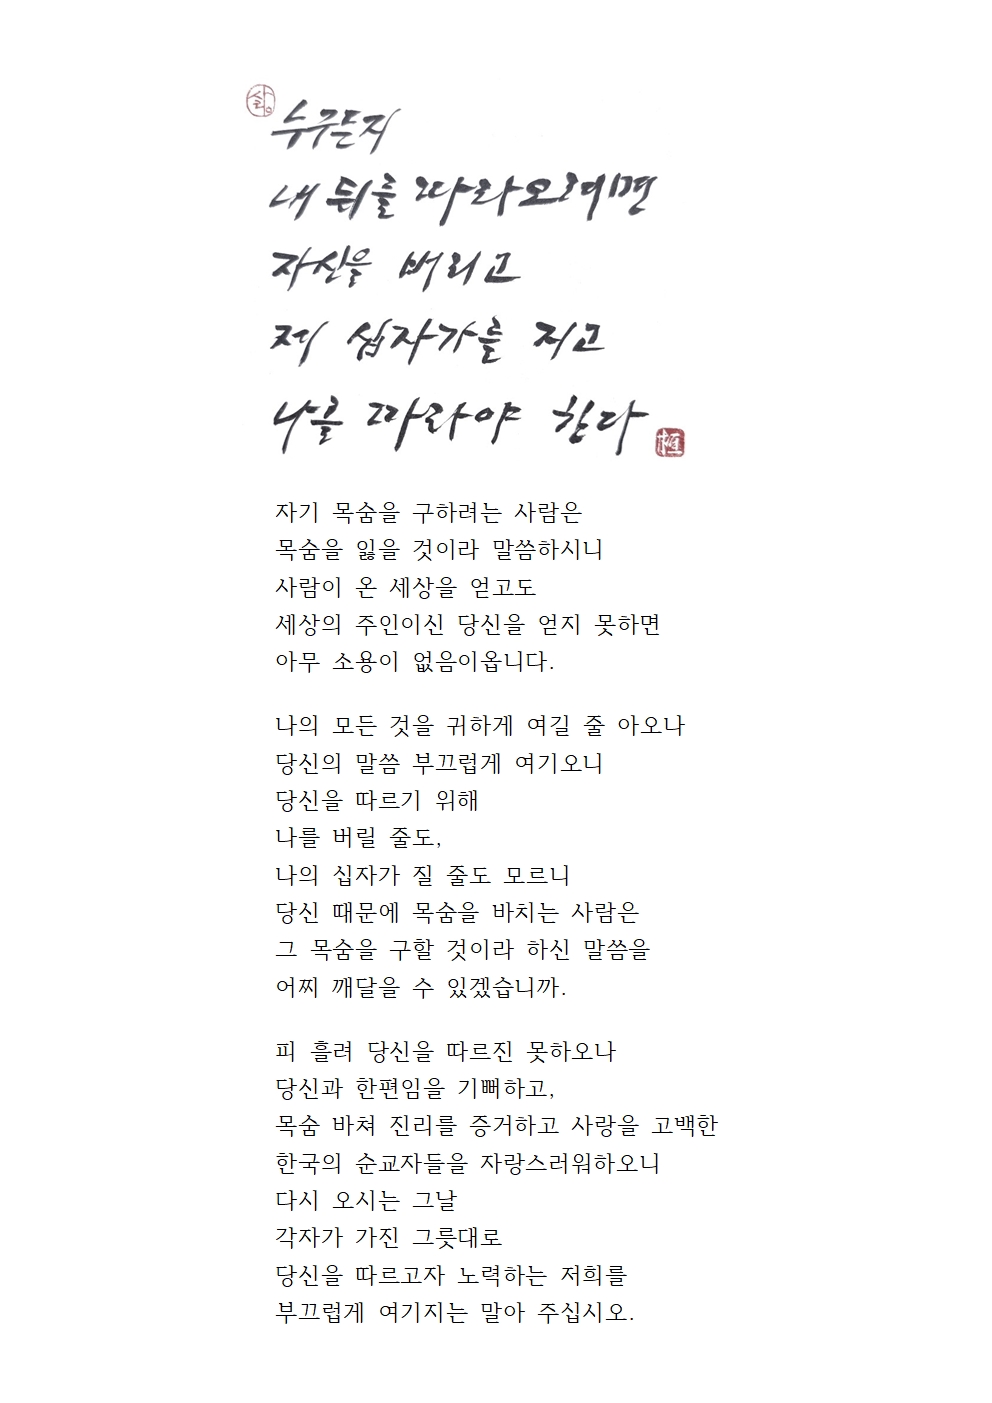 누구든지
내 뒤를 따라오려면
자신을 버리고
제 십자가를 지고
나를 따라야 한다
자기 목숨을 구하려는 사람은
목숨을 잃을 것이라 말씀하시니
사람이 온 세상을 얻고도
세상의 주인이신 당신을 얻지 못하면
아무 소용이 없음이옵니다.
나의 모든 것을 귀하게 여길 줄 아오나
당신의 말씀 부끄럽게 여기오니
당신을 따르기 위해
나를 버릴 줄도,
나의 십자가 질 줄도 모르니
당신 때문에 목숨을 바치는 사람은
그 목숨을 구할 것이라 하신 말씀을
어찌 깨달을 수 있겠습니까.
피 흘려 당신을 따르진 못하오나
당신과 한편임을 기뻐하고,
목숨 바쳐 진리를 증거하고 사랑을 고백한
한국의 순교자들을 자랑스러워하오니
다시 오시는 그날
각자가 가진 그릇대로
당신을 따르고자 노력하는 저희를
부끄럽게 여기지는 말아 주십시오.